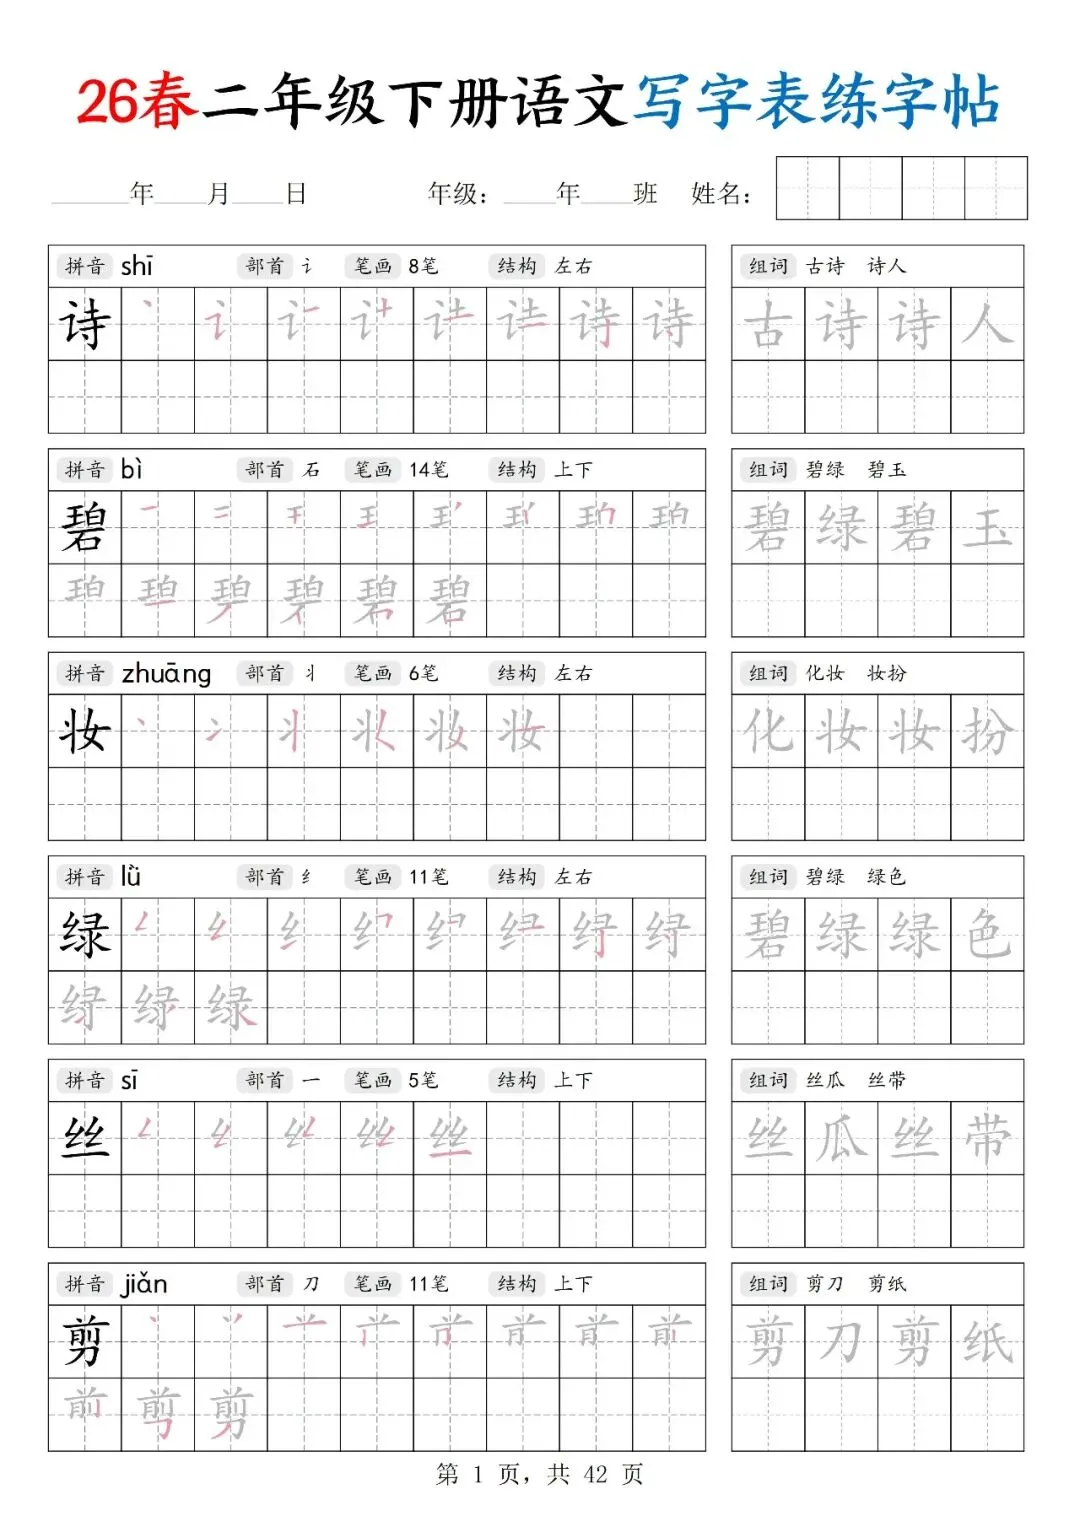 26春二年级下册语文写字表练字帖
年 月 日 年级: 年 班 姓名:
拼音 shī 部首 讠 笔画 8笔 结构 左右 组词 古诗 诗人
诗 古诗诗人
拼音 bì 部首 石 笔画 14笔 结构 上下 组词 碧绿 碧玉
碧 碧绿碧玉
拼音 zhuāng 部首 丬 笔画 6笔 结构 左右 组词 化妆 妆扮
妆 化妆妆扮
拼音 lǜ 部首 纟 笔画 11笔 结构 左右 组词 碧绿 绿色
绿 碧绿绿色
拼音 sī 部首 一 笔画 5笔 结构 上下 组词 丝瓜 丝带
丝 丝瓜丝带
拼音 jiǎn 部首 刀 笔画 11笔 结构 上下 组词 剪刀 剪纸
剪 剪刀剪纸
第 1 页，共 42 页